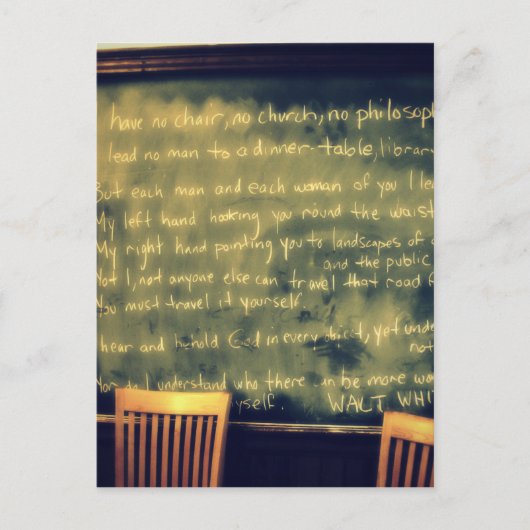 have no chair, no church, no philosoph
lead no man to a dinner-table, library
But each man and each woman of you I lea
My left hand hooking you round the waist
My right hand pointing you to landscapes of
and the public
Not I, not anyone else can travel that road f
You must travel it yourself.
hear and behold God in every object, yet unde
not
Nor do I understand who there can be more wo
yself. WALT WHI